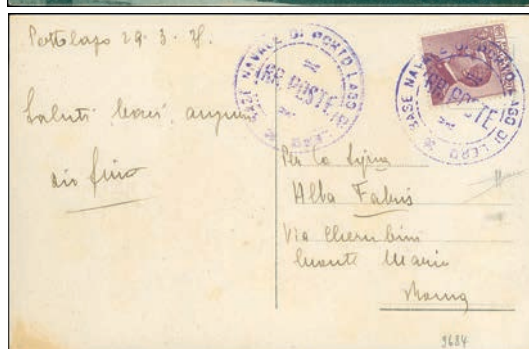 Portolago 29.3.
Saluti baci, auguri
zio Gino
BASE NAVALE DI PORTO LAGO DI LERO
ARR. POSTE
BASE NAVALE DI PORTO LAGO DI LERO
ARR. POSTE
Per la
Alba Fabris
Via Cherubini
Monte Mario
Roma
9684